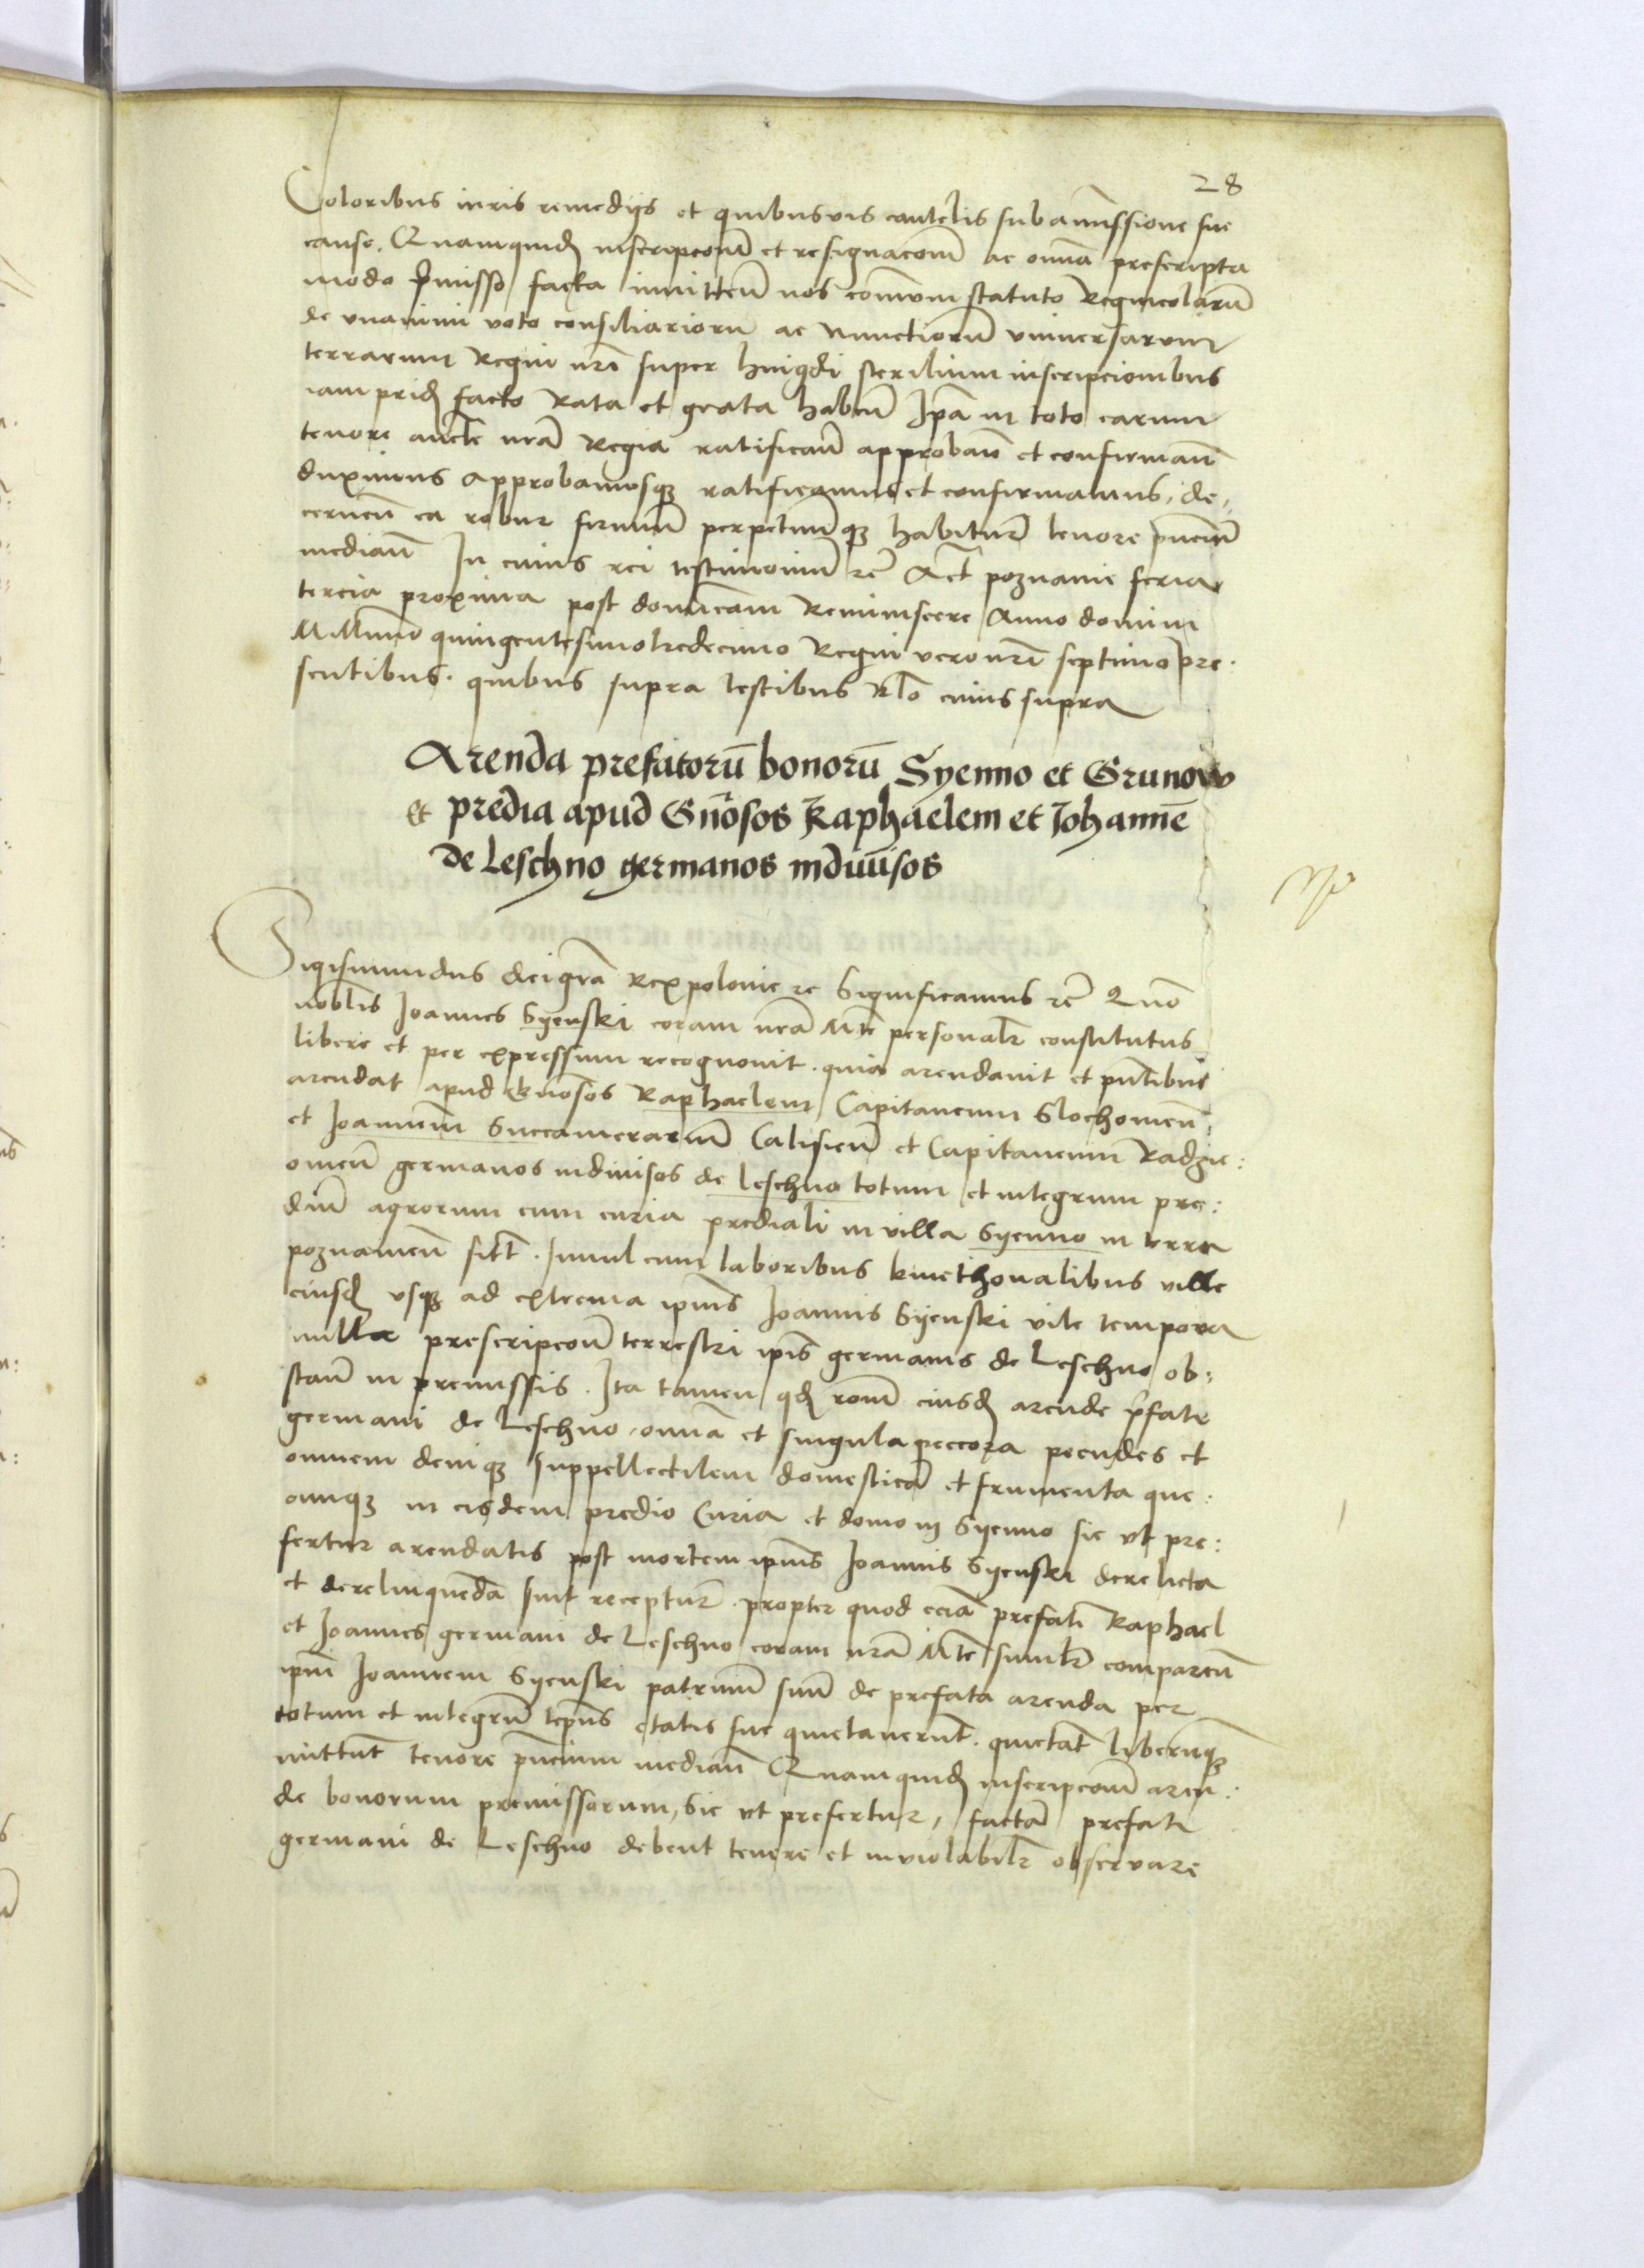 28
Coloribus iuris remedijs et quibusvis cautelis sub amissione sue
cause. Quamquid᷎ inscripcoñ et resignacoñ ac omña prescripta
modo p̃misso facta innitteñ nos comuni statuto Regnicolarũ
de vnanimi voto consiliariorũ ac Nunctiorũ vniuersarum
terrarum Regni nr̃i super huiq̃di sterilium inscripcionibus
iam prid᷎ facto Rata et grata habeñ Ip̃a in toto earum
tenore aucte nr̃a Regia ratificañ approbañ et confirmañ
duximus Approbamusq₃ ratificamus et confirmamus, de,
cerneñ ea robur firmũ perpetuũq₃ habitur̃ tenore pñciũ
mediañ In cuius rei testimoniũ rc̃ Act̃ poznanie feria
tercia proxima post domĩcam Reminiscere Anno domini
Millimo quingentesimotredecimo Regni vero nr̃i septimo pre.
sentibus. quibus supra testibus Rlo cuius supra
Arenda prefatorũ bonorũ Syenno et Grunow
et predia apud Gñosos Raphaelem et Johannẽ
de Leschno germanos indiuisos
Sigismundus dei gr̃a Rex polonie rc Significamus rc̃ Quo᷎
nobĩlis Joannes Syenski coram nr̃a Mte personalr̃ constitutus
libere et per expressum recognouit. quia arendauit et pñtibus
arendat apud Gñosos Raphaelem Capitaneum Slochomeñ,
et Joannem Succamerariũ Calisieñ et Capitaneum Radzie:
omeñ germanos indiuisos de Leschno totum et integrum pre:
diũ agrorum cum curia prediali in villa Syenno in terra
poznameñ sitt̃. simul cum laboribus kmethonalibus ville
eiusd᷎ vsq₃ ad extrema ipĩus Joannis Syenski vite tempora
nulla prescripcoñ terrestri ip̃is germanis de Leschno ob:
stañ in premissis. Ita tamen qd᷎ roñe eiusd᷎ arende p̃fate
germani de Leschno. omña et singula peccora pecudes et
omnem deniq₃ suppellectilem domesticã et frumenta que.
cunq₃ in eisdem predio Curia et domo in Syenno sic vt pre:
fertur arendatis post mortem ipĩus Joannis Syenski derelicta
et derelinquenda sint receptur̃. propter quod eciã prefati Raphael
et Joannes germani de Leschno coram nr̃a Mte similr̃ compareñ
ipm̃ Joannem Syenski patruũ suũ de prefata arenda per
totum et integrũ tep̃us etatis sue quietauerũt. quietãt liberũq₃
mittunt tenore pñcium mediañ Quamquid᷎ inscripcoñ aren.
de bonorum premissorum, sic vt prefertur, factã prefati
germani de Leschno debent tenere et inuiolabilr̃ obseruare